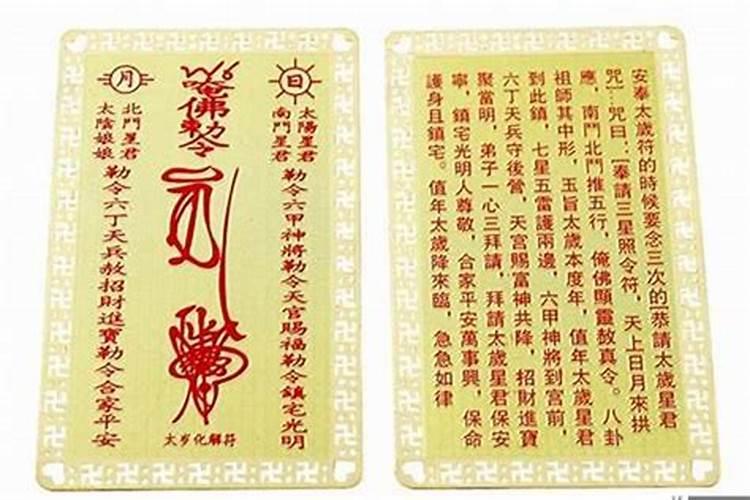 日
太陽星君
南鬥星君
勒令六甲神將勒令天官賜福勒令鎮宅光明
佛勅令
太岁化解符
月
北鬥星君
太陰娘娘
勒令六丁天兵赦招財進寶勒令合家平安
安奉太歲符的時候要念三次的[恭請太歲星君
咒]…咒曰：[奉請三星照令符，天上日月來拱
應，南鬥北鬥推五行，俺佛顯靈敖真令。八卦
祖師其中形，玉旨太歲本度年，值年太歲星君
到此鎮，七星五雷護兩邊，六甲神將到宫前，
六丁天兵守後營，天宫賜富神共降，招財進寶
聚當明，弟子一心三拜請，拜請太歲星君保安
寧，鎮宅光明人尊敬，合家平安萬事興，保命
護身且鎮宅。值年太歲降來臨，急急如律